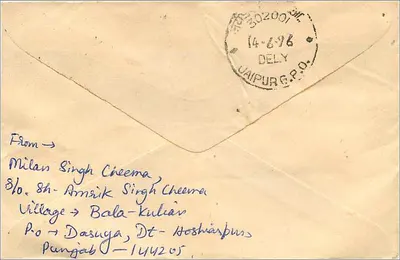 302001
14-6-96
DELY
JAIPUR G.P.O.
From →
Milan Singh Cheema,
S/o. Sh- Amrik Singh Cheema
Village → Bala-Kulian
P.o → Dasuya, Dt- Hoshiarpur,
Punjab — 144205.